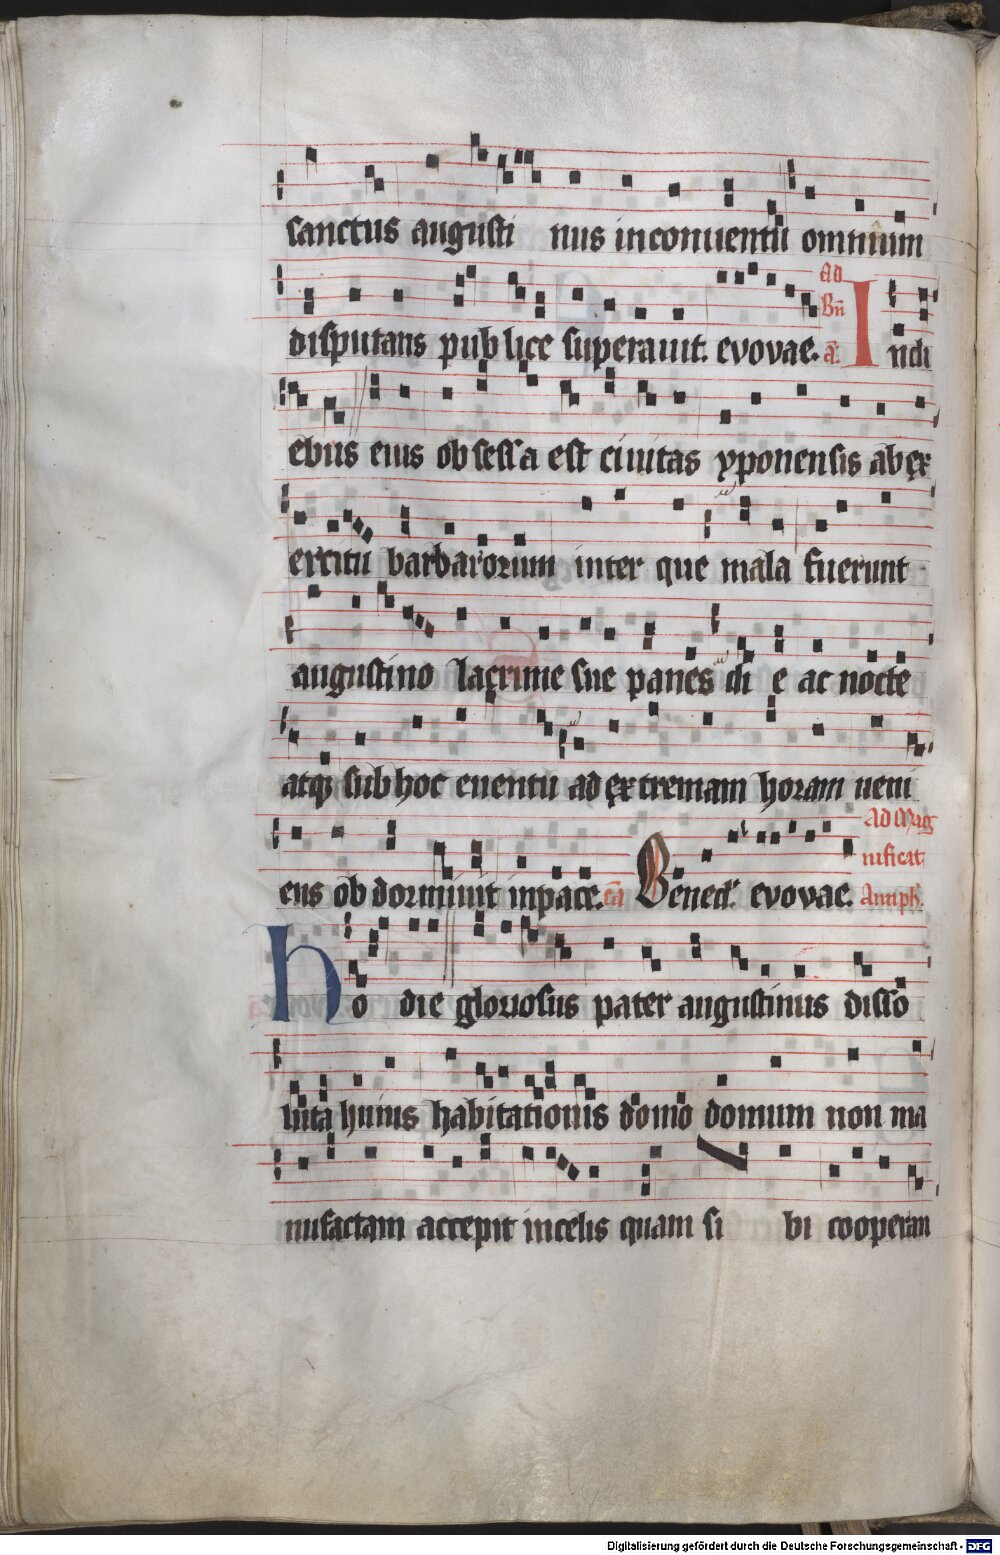 sanctus augusti nus inconuentū omnium
disputans publice superauit. evovae. Ad Bn̄ a. Indi
ebus eius obsessa est ciuitas yponensis ab ex
ercitu barbarorum inter que mala fuerunt
augustino lacrime sue panes di e ac nocte
atqꝫ sub hoc euentu ad extremam horam ueni
ens obdormiuit in pace. Bened'. evovae. Ad Mag
nificat
Antiph'.
Ho die gloriosus pater augustinus disso
luta huius habitationis domo domum non ma
nufactam accepit incelis quam si bi cooperan
Digitalisierung gefördert durch die Deutsche Forschungsgemeinschaft - DFG